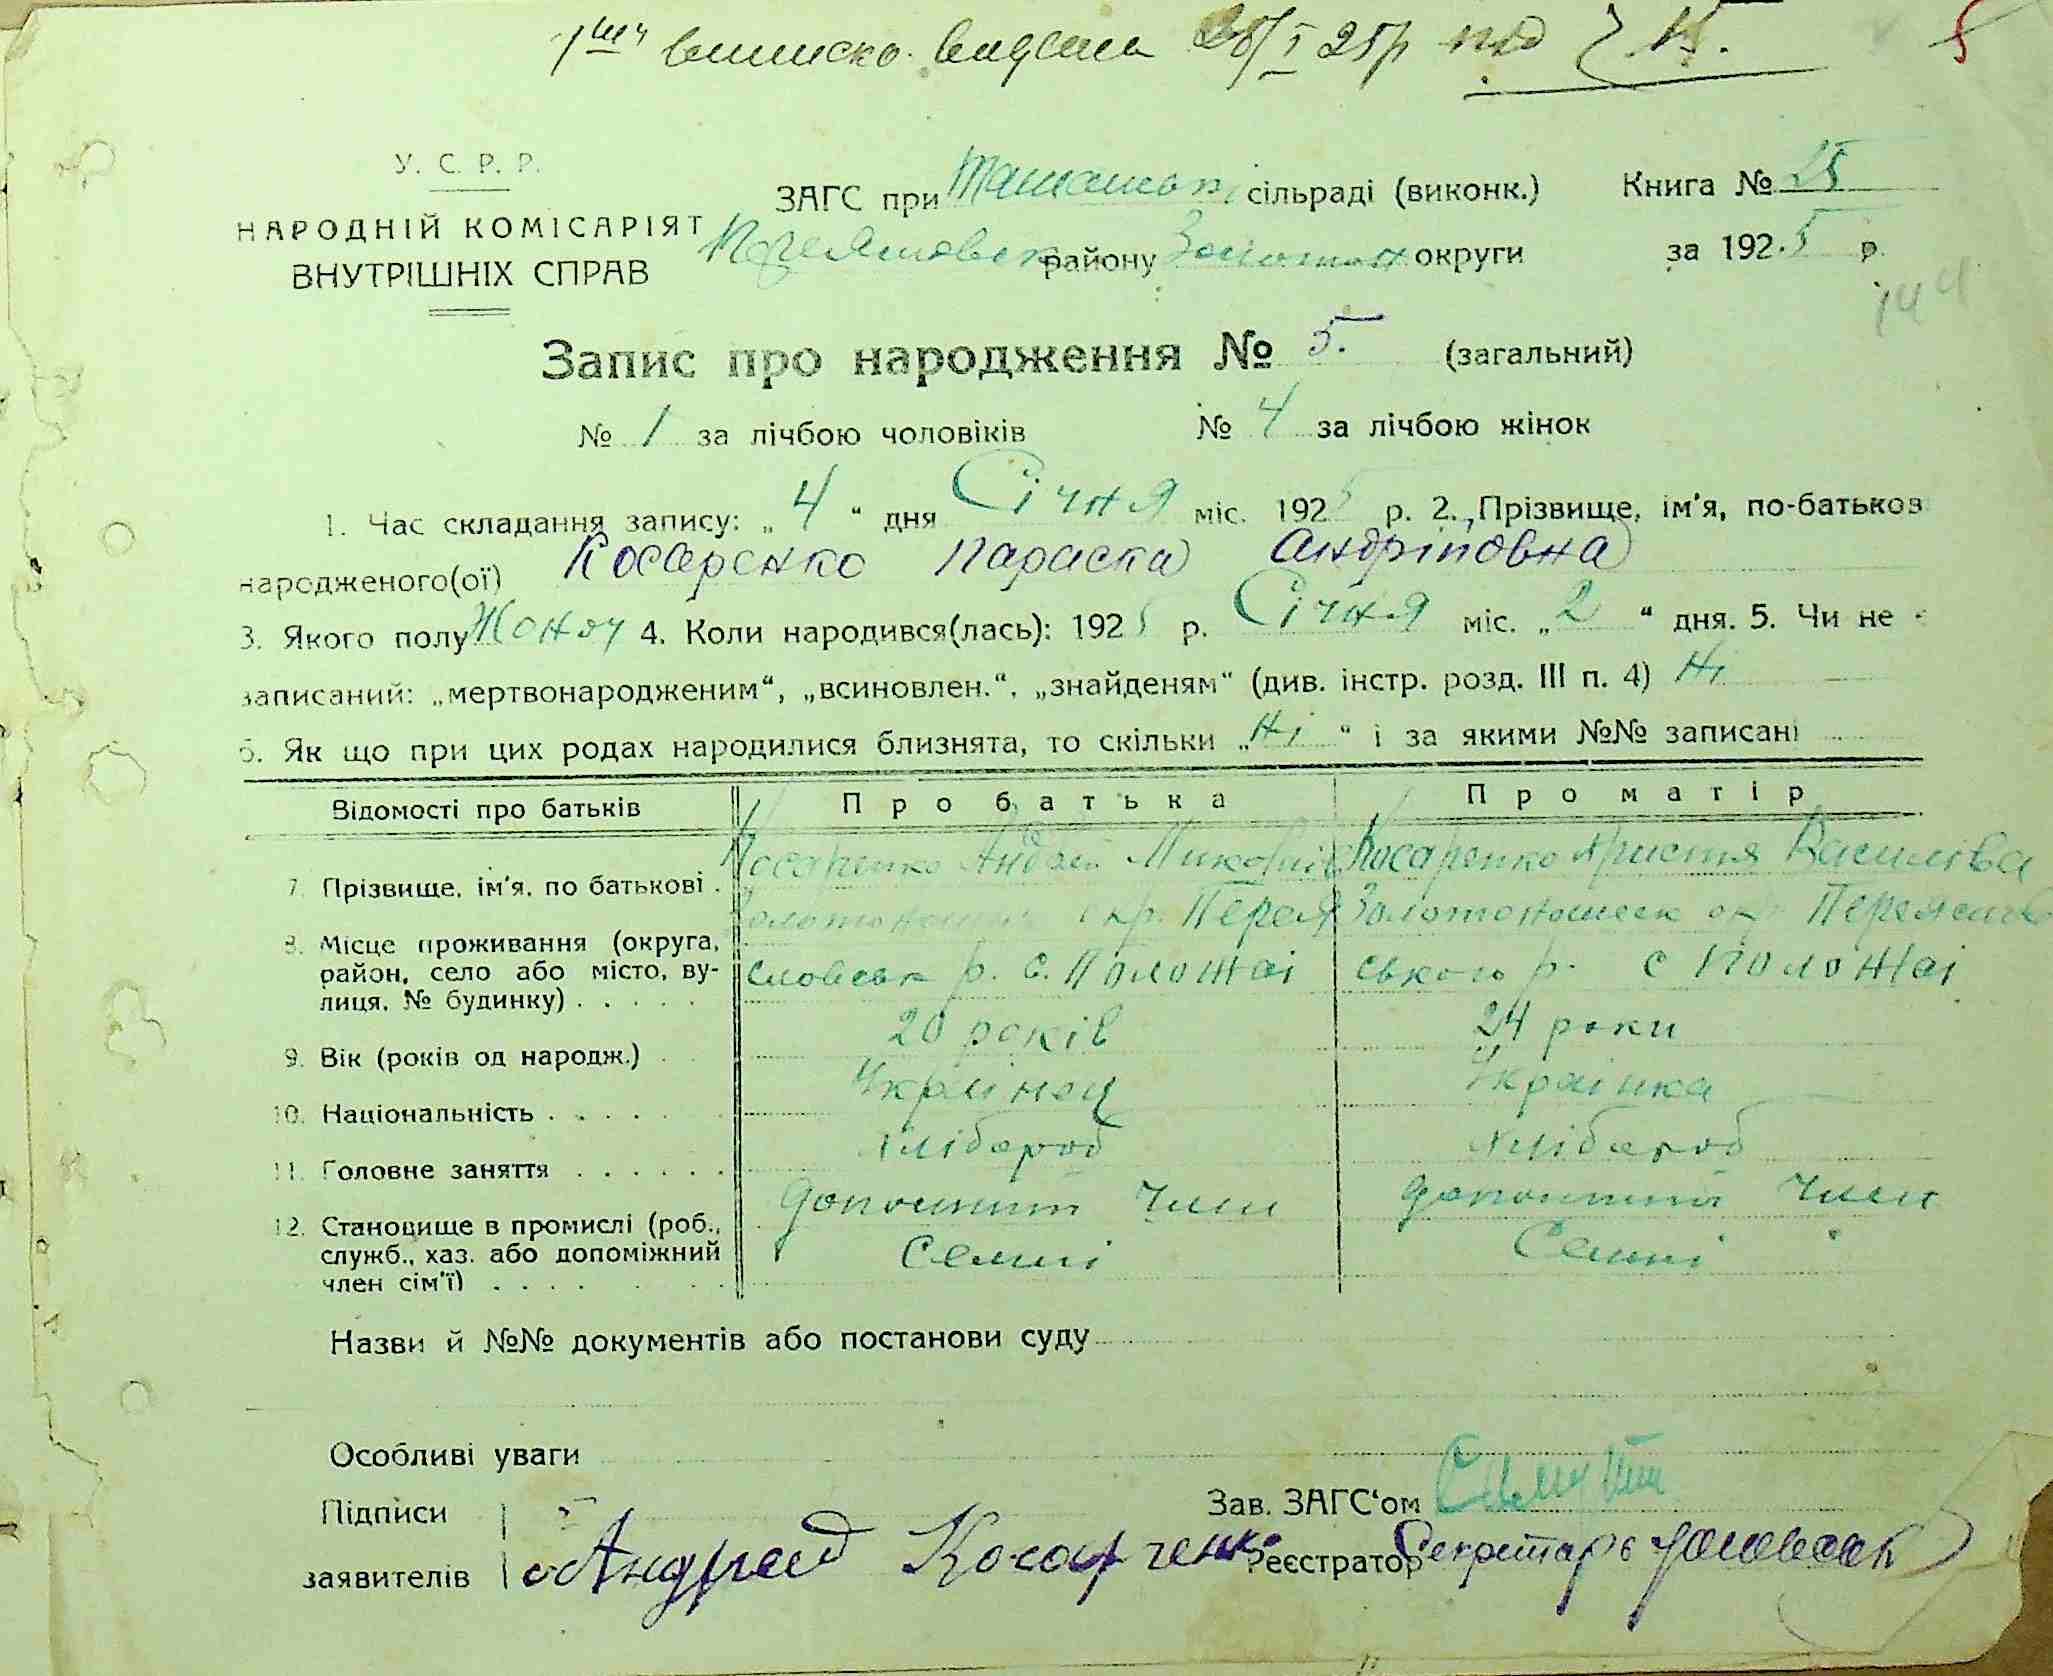 виписка видана 28/I 25р під
У. С. Р. Р.
НАРОДНІЙ КОМІСАРІЯТ
ВНУТРІШНІХ СПРАВ
ЗАГС при Ташанськ. сільраді (виконк.) Книга № 25
району Золотон округи за 1925 р.
144
Запис про народження № 5. (загальний)
№ 1 за лічбою чоловіків № 4 за лічбою жінок
1. Час складання запису: „4“ дня Січня міс. 1925 р. 2. Прізвище, ім'я, по-батьков
народженого(ої) Косаренко Параска Андріповна
3. Якого полу Жоноч 4. Коли народився(лась): 1925 р. Січня міс. „2“ дня. 5. Чи не є
записаний: „мертвонародженим“, „всиновлен.“, „знайденям“ (див. інстр. розд. III п. 4) Ні
6. Як що при цих родах народилися близнята, то скільки „Ні“ і за якими №№ записані
Відомості про батьків Про батька Про матір
7. Прізвище, ім'я, по батькові . Косаренко Андрій Косаренко Христя Василівна
8. Місце проживання (округа, район, село або місто, вулиця, № будинку) . . . . . Золотоношськ окр. Перея Золотоношськ окр. Переяслов
словськ р. с. Положаі ського р. с Положаі
9. Вік (років од народж.) . . 20 років 24 роки
10. Національність . . . . . Украінец Украінка
11. Головне заняття . . . . . . Хлібороб Хлібороб
12. Становище в промислі (роб., служб., хаз. або допоміжний член сім'ї) . . . . . . член Семні член Семні
Назви й №№ документів або постанови суду
Особливі уваги
Підписи
заявителів Андрей Косарченко
Зав. ЗАГС'ом
Реєстратор Секретарь